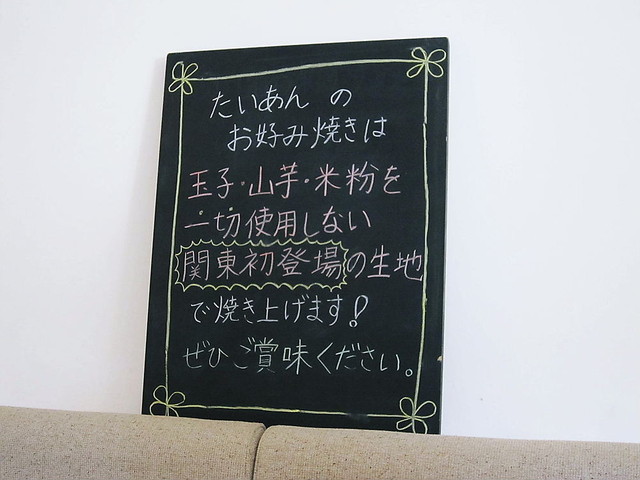 たいあん の
お好み焼きは
玉子・山芋・米粉を
一切使用しない
関東初登場の生地
で焼き上げます!
ぜひご賞味ください。